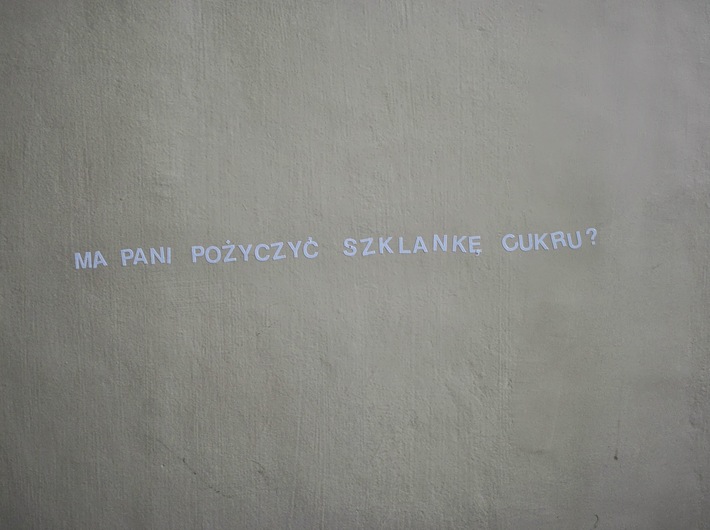 MA PANI POŻYCZYĆ SZKLANKĘ CUKRU?